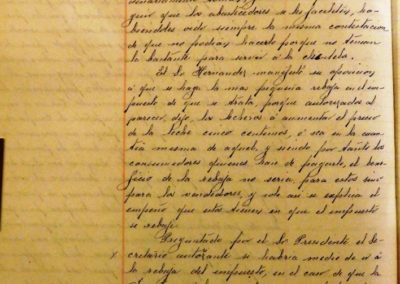 quir que los abastecedores se les facilitó, ha-
biéndoles oido siempre la misma contestacion
de que no podian hacerlo porque no tenian
la bastante para servir á la clientela.
El Sr Hernandez manifestó su oposicion
á que se haga la mas pequeña rebaja en el im-
puesto de que se trata, porque autorizados al
parecer, dijo, los lecheros á aumentar el precio
de la leche cinco centimos, ó sea en la cuan-
tia misma de aquel, y siendo por tanto los
consumidores quienes han de pagarlo, el bene-
ficio de la rebaja no seria para estos sino
para los vendedores, y solo asi se esplica el
empeño que estos tienen en que el impuesto
se rebaje.
Preguntado por el Sr Presidente el Se-
x cretario autorizante si habria medio de ir á
la rebaja del impuesto, en el caso de que la